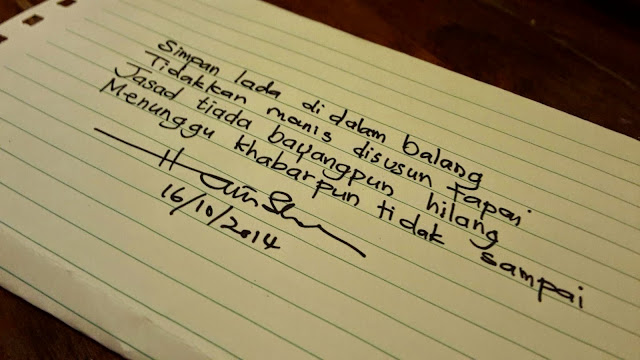 Simpan lada di dalam balang
Tidakkan manis disusun papai
Jasad tiada bayangpun hilang
Menunggu khabarpun tidak sampai
16/10/2014